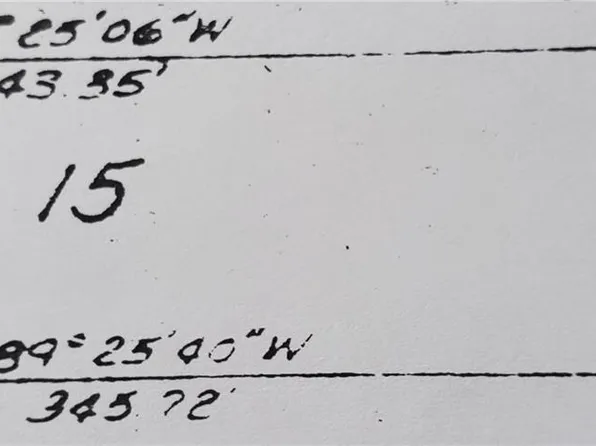 °25'06"W
43.35'
15
89°25'40"W
345.72'